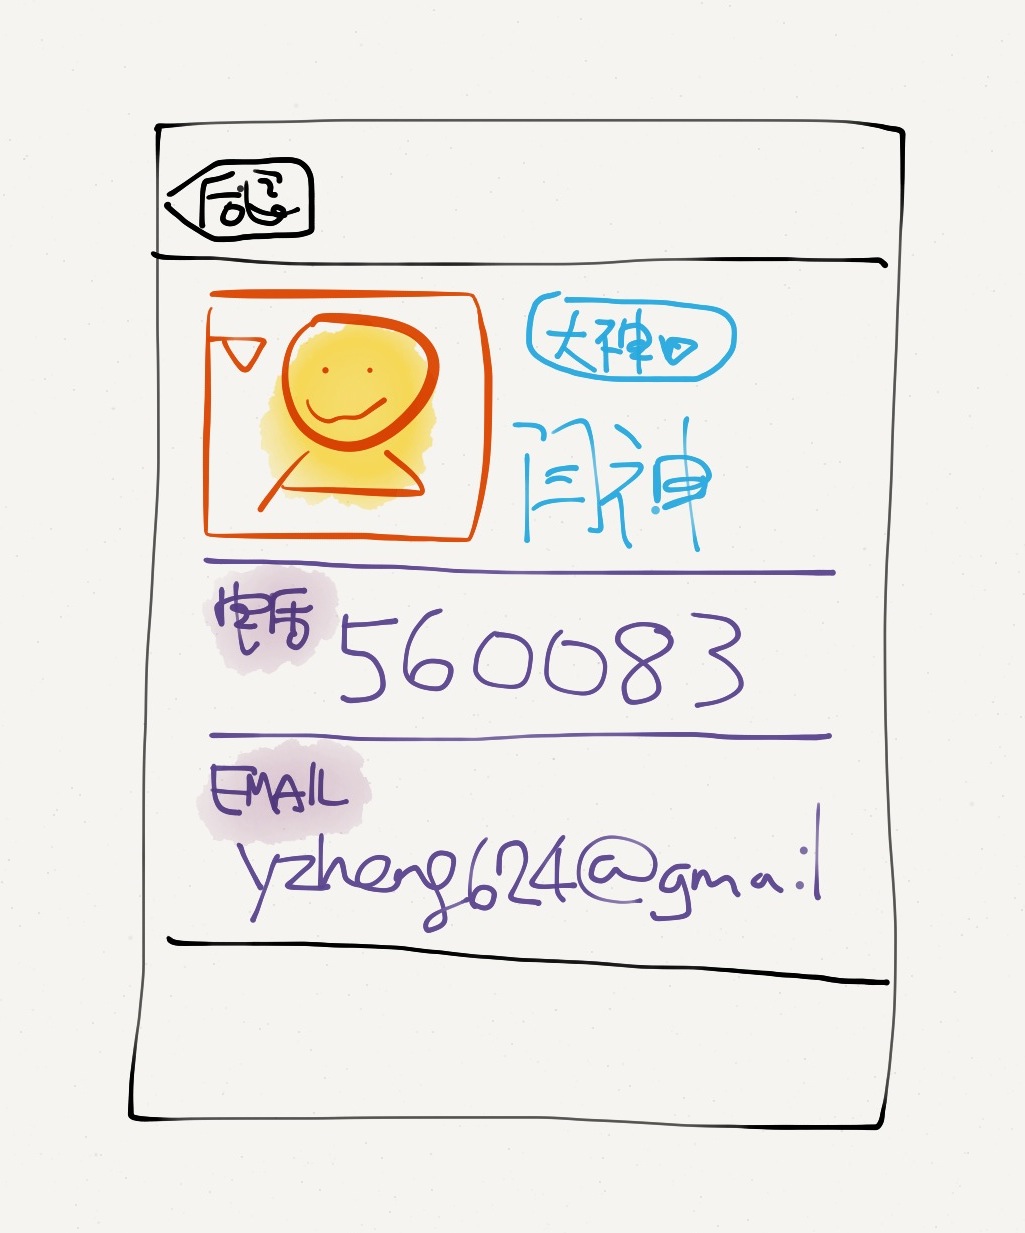 大神
闫神
电话 560083
EMAIL
yzheng624@gmail